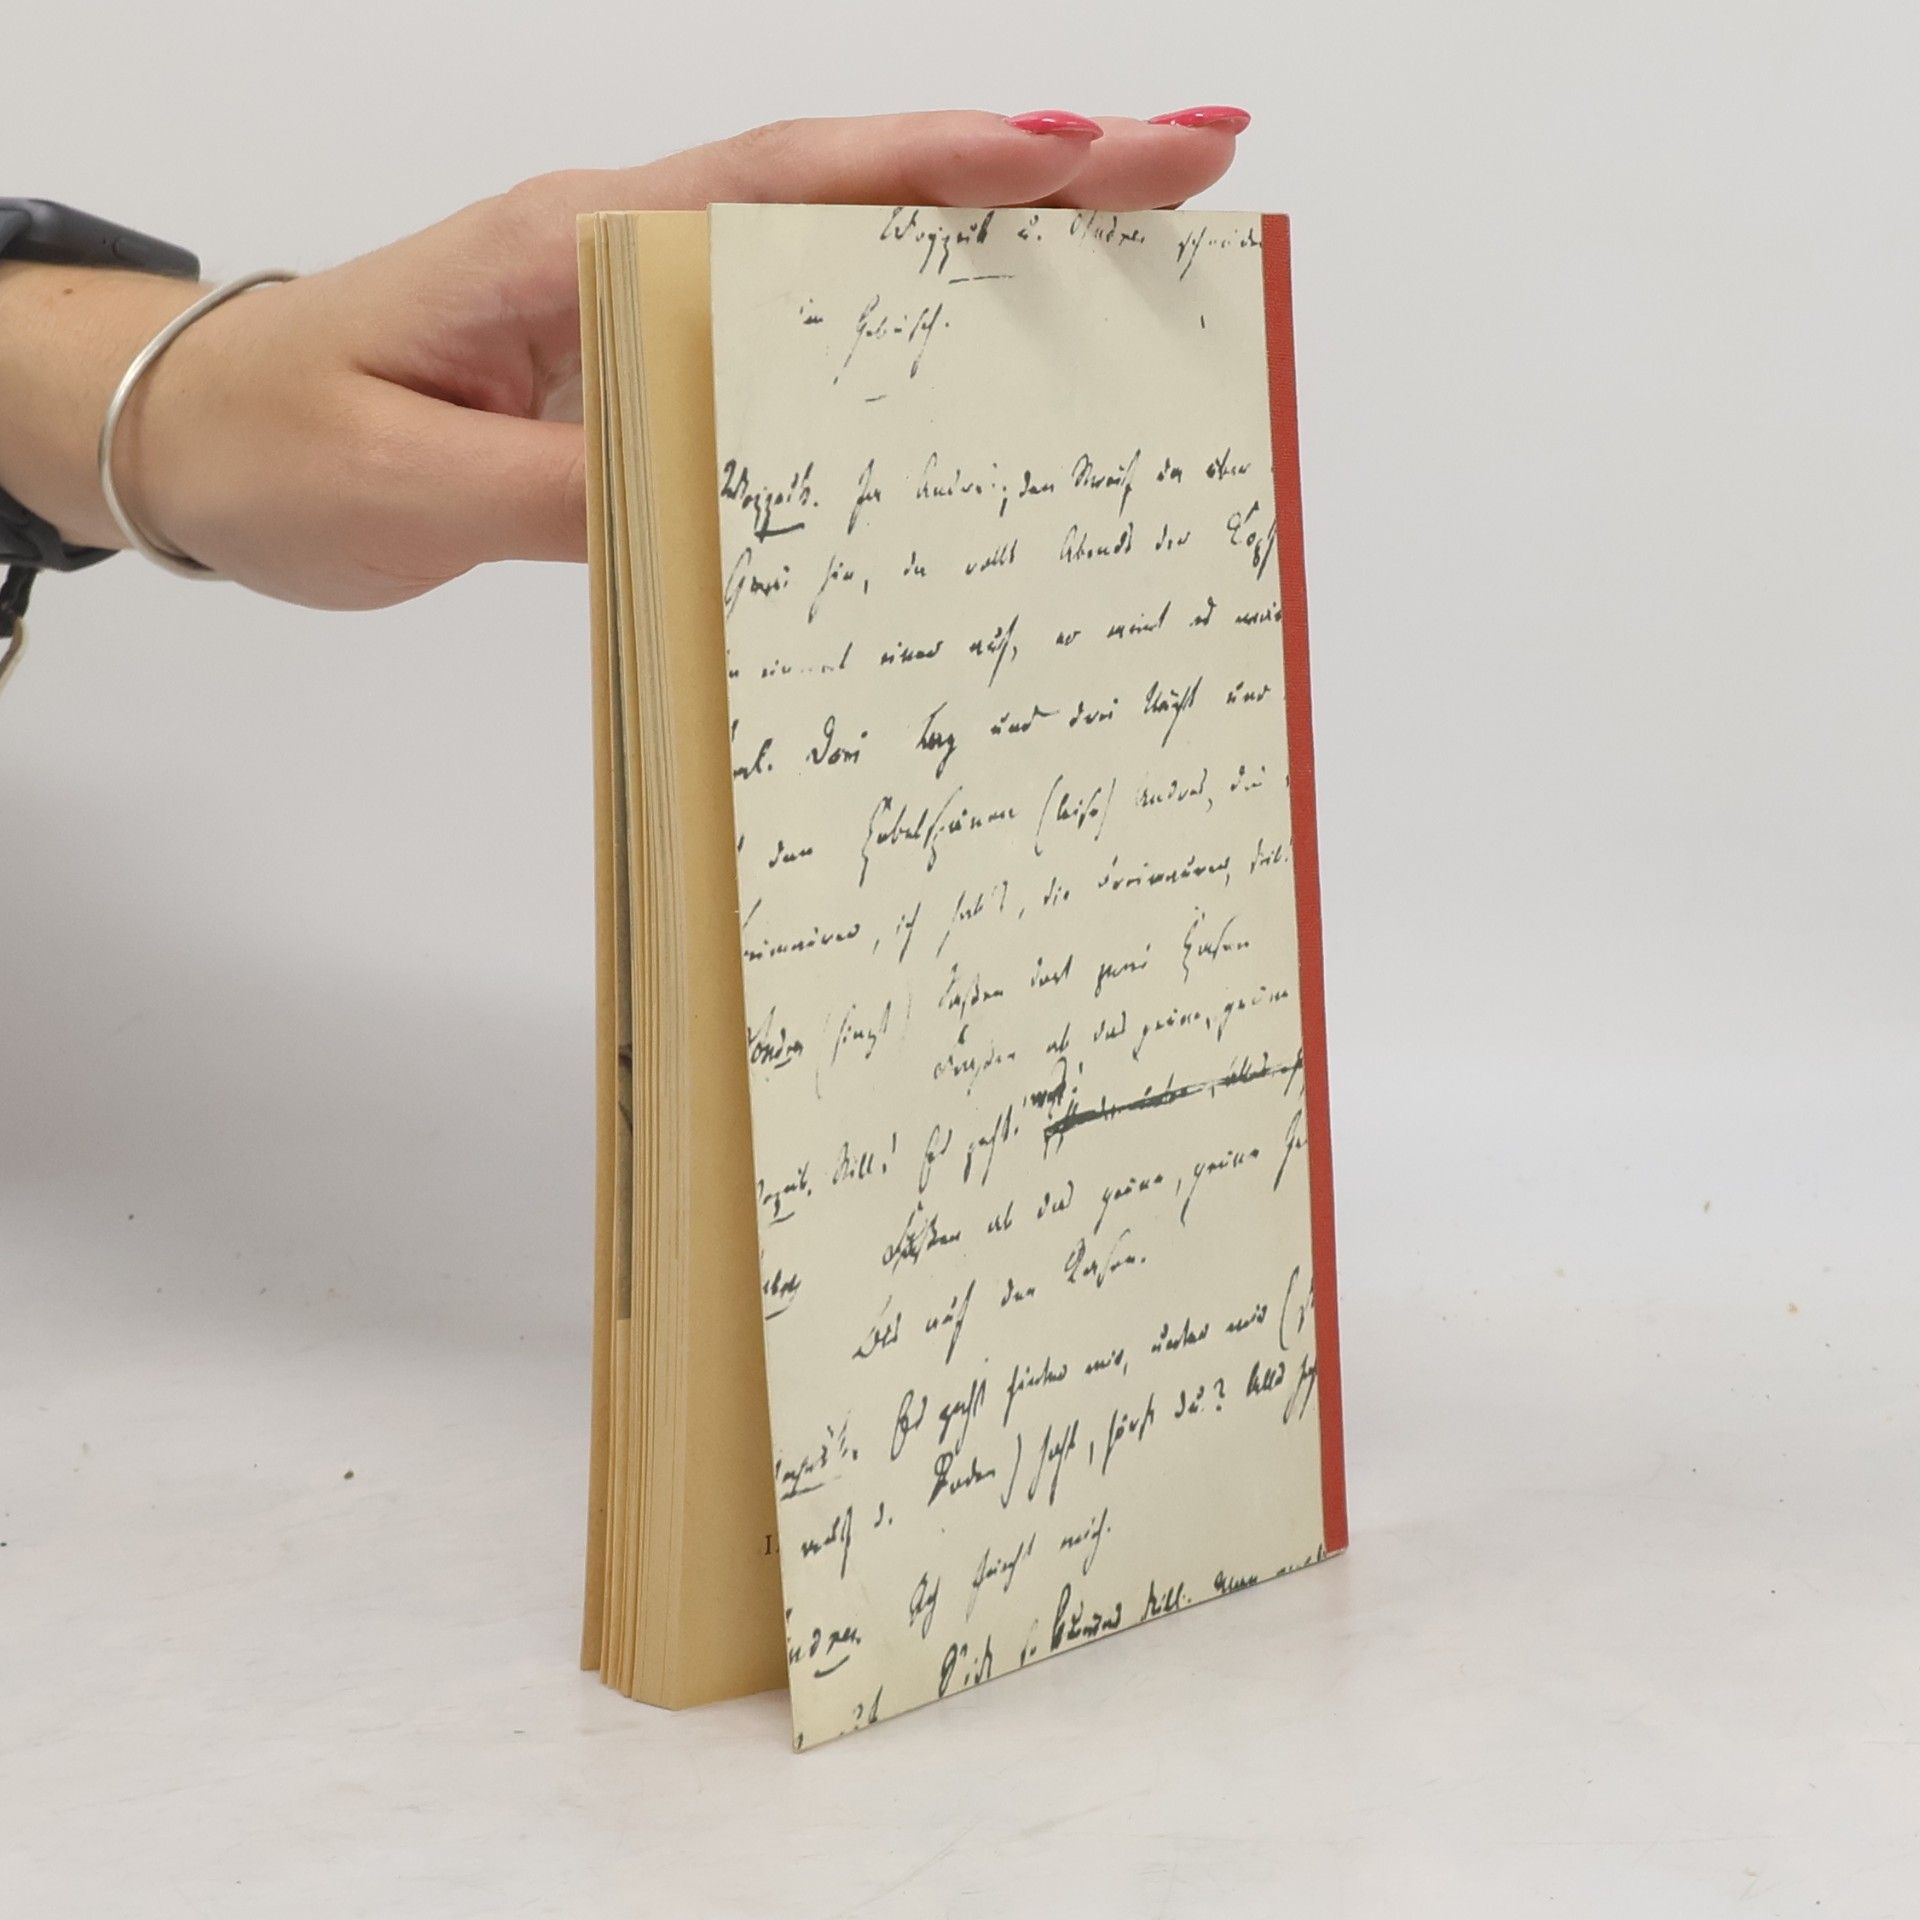 Woyzeck u. Andres schneiden
im Gebüsch.
Woyzeck. Ja Andres; den Streif da über
Gras hin, da rollt Abends der Kopf
einmal einer auf, er meint es wär
gel. Drei Tag und drei Nächt und
den Hobelspänen (leise) Andres, die
reimaurer, ich hab's, die Freimaurer, still!
Andres (singt) Saßen dort zwei Hasen
Fraßen ab das grüne, grüne
Still! Es geht! was!
Fraßen ab das grüne, grüne
Bis auf den Rasen.
Es geht hinter mir, unter mir (
d. Boden) hohl, hörst du? Alles
ndres. Ich fürcht mich.
still. Man